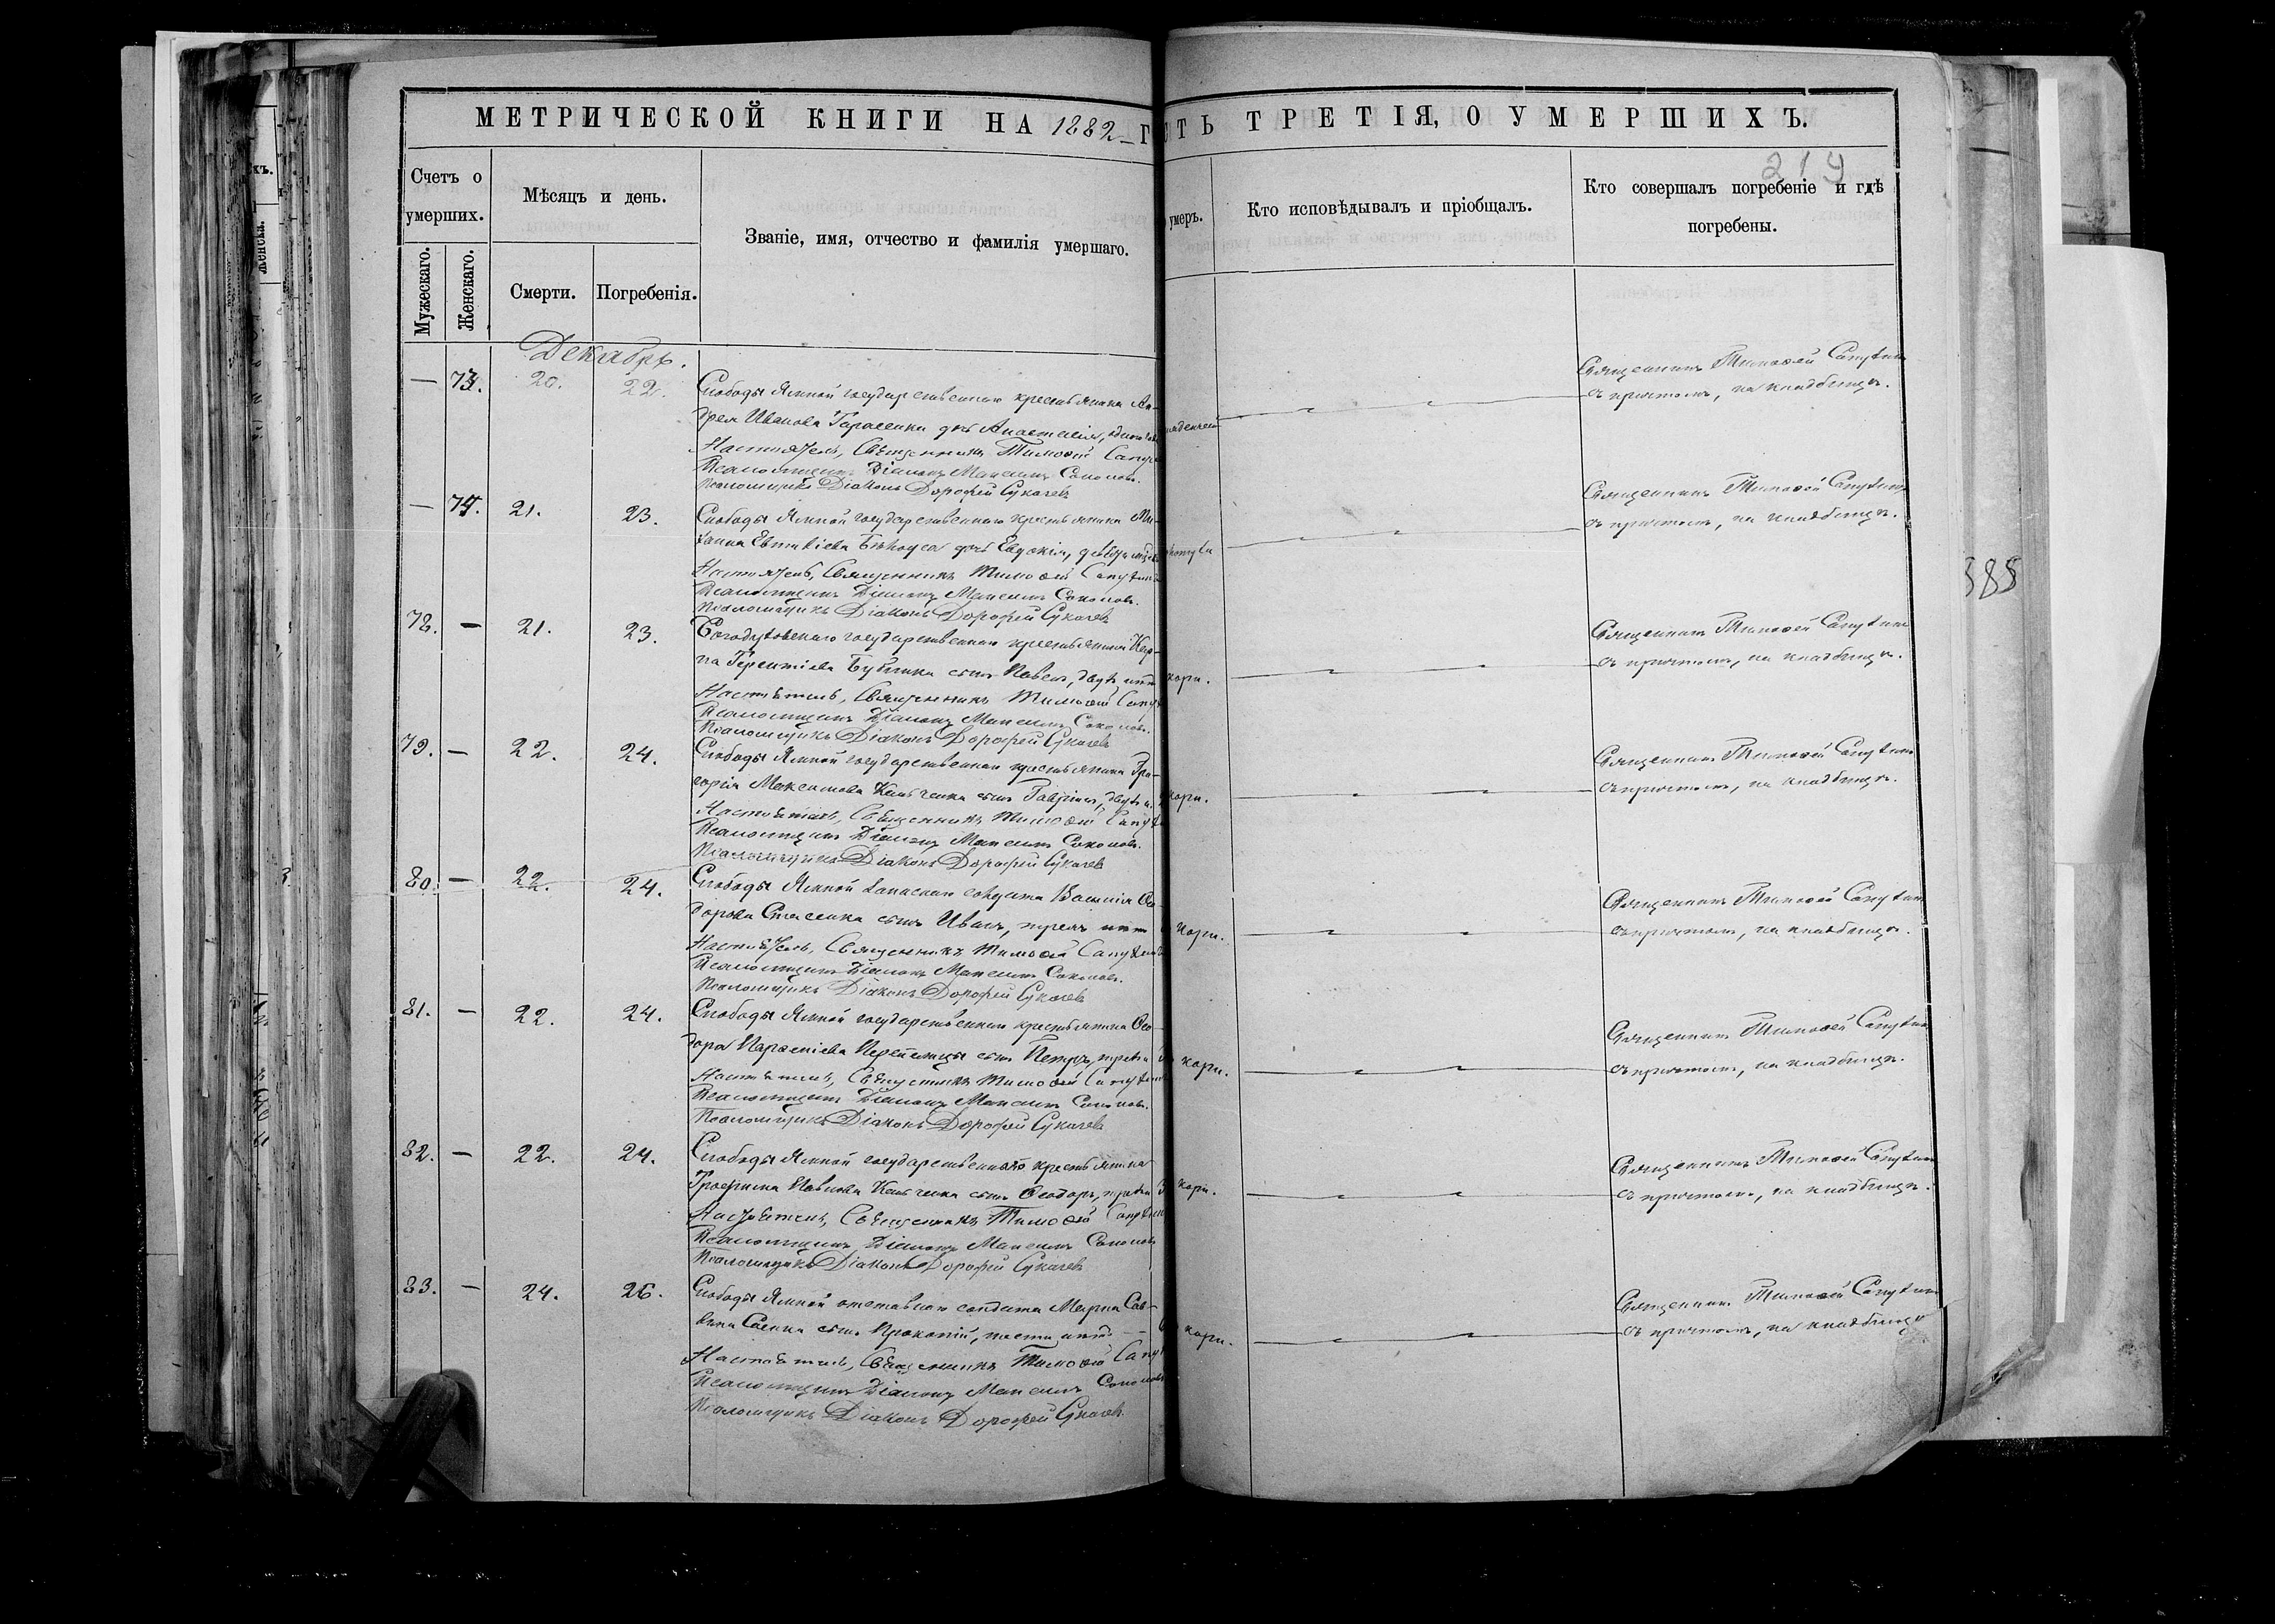 МЕТРИЧЕСКОЙ КНИГИ НА 1882 Г
СТЬ ТРЕТІЯ, О УМЕРШИХЪ.
219
Счетъ о умерших.
Мужескаго.
Женскаго.
Мѣсяцъ и день.
Смерти.
Погребенія.
Званіе, имя, отчество и фамилія умершаго.
умеръ.
Кто исповѣдывалъ и пріобщалъ.
Кто совершалъ погребеніе и гдѣ
погребены.
Декабрь.
— 73. 20. 22. Слободы Ямной государственнаго крестьянина Ан-
дрея Иванова Тарасенка дочь Анастасія,
Настоятель, Священникъ Тимофей
Псаломщикъ Діаконъ Максимъ Соколовъ.
Псаломщикъ Діаконъ Дорофей Сукачевъ
Священникъ Тимофей
съ причтомъ, на кладбищѣ.
— 74. 21. 23. Слободы Ямной государственнаго крестьянина Ми-
хаила Евтихіева дочь Евдокія,
Настоятель, Священникъ Тимофей
Псаломщикъ Діаконъ Максимъ Соколовъ.
Псаломщикъ Діаконъ Дорофей Сукачевъ
Священникъ Тимофей
съ причтомъ, на кладбищѣ.
78. — 21. 23. государственнаго крестьянина Кар-
па Терентіева сынъ Павелъ, двухъ лѣтъ кори.
Настоятель, Священникъ Тимофей
Псаломщикъ Діаконъ Максимъ Соколовъ.
Псаломщикъ Діаконъ Дорофей Сукачевъ
Священникъ Тимофей
съ причтомъ, на кладбищѣ.
79. — 22. 24. Слободы Ямной государственнаго крестьянина Гри-
горія Максимова сынъ Гавріилъ, двухъ л. кори.
Настоятель, Священникъ Тимофей
Псаломщикъ Діаконъ Максимъ Соколовъ.
Псаломщикъ Діаконъ Дорофей Сукачевъ
Священникъ Тимофей
съ причтомъ, на кладбищѣ.
80. — 22. 24. Слободы Ямной запаснаго солдата Василія Ѳео-
дорова Стасенка сынъ Иванъ, трехъ лѣтъ кори.
Настоятель, Священникъ Тимофей
Псаломщикъ Діаконъ Максимъ Соколовъ.
Псаломщикъ Діаконъ Дорофей Сукачевъ
Священникъ Тимофей
съ причтомъ, на кладбищѣ.
81. — 22. 24. Слободы Ямной государственнаго крестьянина Ѳео-
дора сынъ Петръ, кори.
Настоятель, Священникъ Тимофей
Псаломщикъ Діаконъ Максимъ Соколовъ.
Псаломщикъ Діаконъ Дорофей Сукачевъ
Священникъ Тимофей
съ причтомъ, на кладбищѣ.
82. — 22. 24. Слободы Ямной государственнаго крестьянина
Трофима Павлова сынъ Ѳеодоръ, кори.
Настоятель, Священникъ Тимофей
Псаломщикъ Діаконъ Максимъ Соколовъ
Псаломщикъ Діаконъ Дорофей Сукачевъ
Священникъ Тимофей
съ причтомъ, на кладбищѣ.
83. — 24. 26. Слободы Ямной отставнаго солдата Марка Сав-
вина сынъ Прокопій, шести лѣтъ — кори.
Настоятель, Священникъ Тимофей
Псаломщикъ Діаконъ Максимъ Соколовъ
Псаломщикъ Діаконъ Дорофей Сукачевъ.
Священникъ Тимофей
съ причтомъ, на кладбищѣ
385